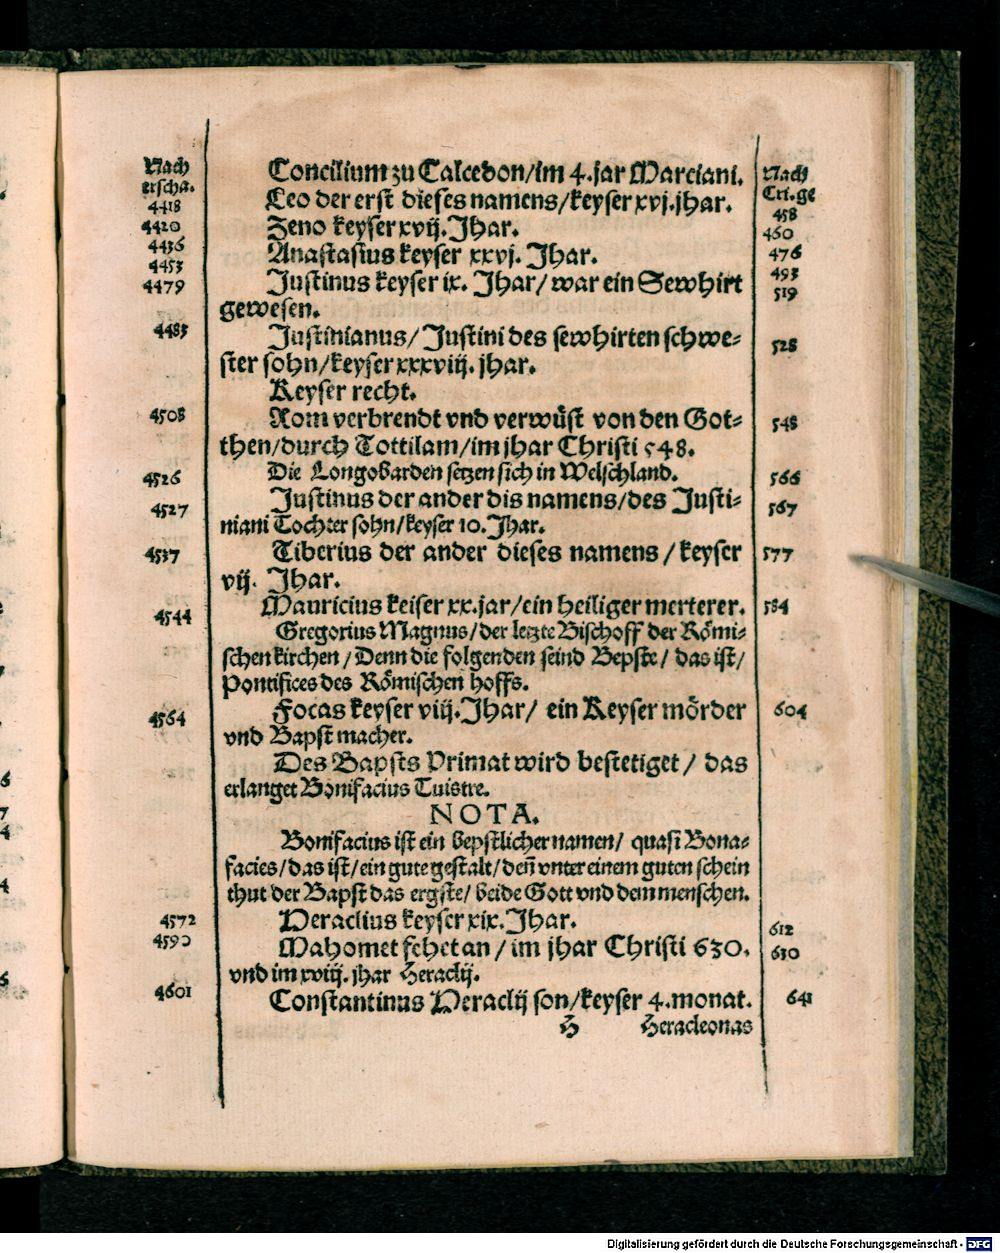 Nach Concilium zu Calcedon/im 4.jar Marciani. Nach
erscha. Leo der erst dieses namens/keyser xvj.jhar. Cri.ge
4418 458
4420 Zeno keyser xvij. Jhar. 460
4436 Anastasius keyser xxvj. Jhar. 476
4453 493
4479 Justinus keyser ix. Jhar/ war ein Sewhirt 519
gewesen.
4485 Justinianus/ Justini des sewhirten schwe= 528
ster sohn/keyser xxxviij. jhar.
Keyser recht.
4508 Rom verbrendt vnd verwüst von den Got= 548
then/durch Tottilam/im jhar Christi 548.
4526 Die Longobarden setzen sich in Welschland. 566
4527 Justinus der ander dis namens/des Justi= 567
niani Tochter sohn/keyser 10. Jhar.
4537 Tiberius der ander dieses namens / keyser 577
vij. Jhar.
4544 Mauricius keiser xx.jar/ein heiliger merterer. 584
Gregorius Magnus/der letzte Bischoff der Römi=
schen kirchen / Denn die folgenden seind Bepste/ das ist/
Pontifices des Römischen hoffs.
4564 Focas keyser viij. Jhar/ ein Keyser mörder 604
vnd Bapst macher.
Des Bapsts Primat wird bestetiget / das
erlanget Bonifacius Tuistre.
NOTA.
Bonifacius ist ein bepstlicher namen/ quasi Bona=
facies/das ist/ein gute gestalt/deñ vnter einem guten schein
thut der Bapst das ergste/ beide Gott vnd dem menschen.
4572 Heraclius keyser xix. Jhar. 612
4590 Mahomet fehet an / im jhar Christi 630. 630
vnd im xviij. jhar Heraclij.
4601 Constantinus Heraclij son/keyser 4.monat. 641
H Heracleonas
Digitalisierung gefördert durch die Deutsche Forschungsgemeinschaft - DFG